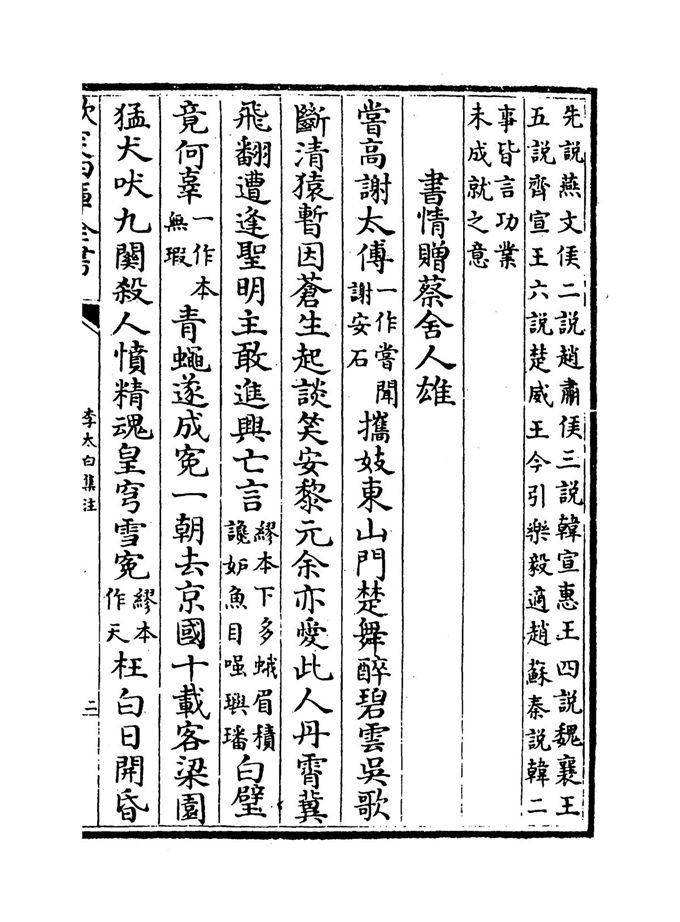 先説燕文侯二説趙肅侯三説韓宣惠王四説魏襄王
五説齊宣王六説楚威王今引樂毅適趙蘇秦説韓二
事皆言功業
未成就之意
書情贈蔡舍人雄
嘗高謝太傅一作嘗聞謝安石攜妓東山門楚舞醉碧雲吳歌
斷清猿暫因蒼生起談笑安黎元余亦愛此人丹霄冀
飛翻遭逢聖明主敢進興亡言繆本下多蛾眉積讒妒魚目嗤璵璠白璧
竟何辜一作本無瑕青蠅遂成冤一朝去京國十載客梁園
猛犬吠九關殺人憤精魂皇穹雪冤繆本作天枉白日開昏
李太白集注
二